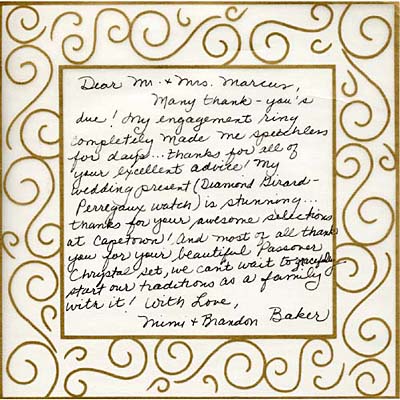 Dear Mr. + Mrs. Marcus,
Many thank-you's
due! My engagement ring
completely made me speechless
for days...thanks for all of
your excellent advice! My
wedding present (Diamond Girard-
Perregaux watch) is stunning...
thanks for your awesome selections
at Capetown! And most of all thank
you for your beautiful Passover
Chrystal set, we can't wait to
start our traditions as a family
with it! With Love,
Mimi + Brandon Baker